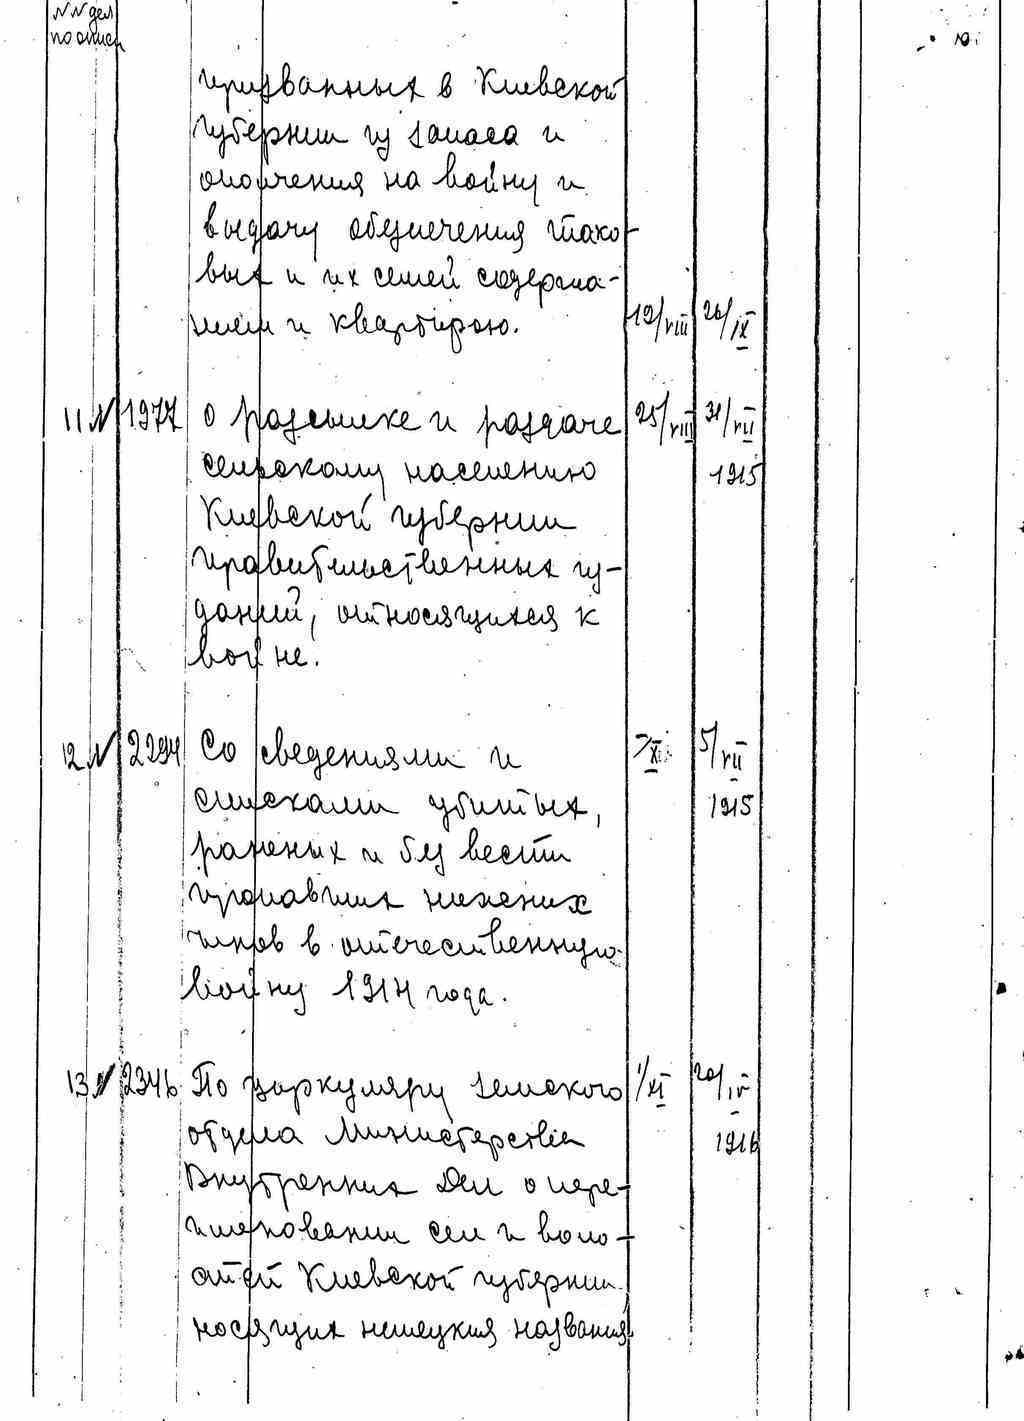 NN дел
по описи
призванных в Киевской
губернии из запаса и
ополчения на войну и
выдачи обезпечения тако-
вых и их семей содержа-
нием и квартирою. 19/VIII 26/IX
11 N 1977 О разсылке и раздаче 25/VIII 31/VII
сельскому населению 1915
Киевской губернии
правительственных из-
даний, относящихся к
войне.
12 N 2294 Со сведениями и 7/XI 5/VII
списками убитых, 1915
раненых и без вести
пропавших нижних
чинов в отечественную
войну 1914 года.
13 N 2346 По циркуляру земского 1/XI 20/IV
отдела Министерства 1916
Внутренних Дел о пере-
именовании сел и воло-
стей Киевской губернии
носящих немецкия названия